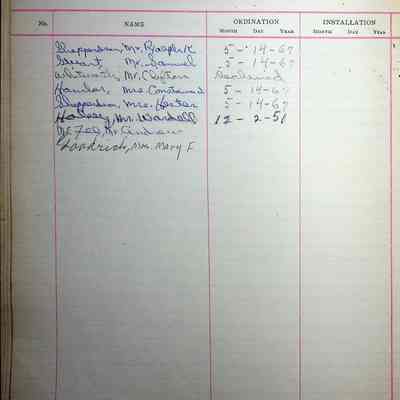 No. NAME ORDINATION INSTALLATION
MONTH DAY YEAR MONTH DAY YEAR
Sheppardson, Mr. Ralph K 5 - 14-67
Stewart, Mr. Samuel 5 - 14-67
Mr. Clayton Declined
Mrs. 5 - 14-67
Sheppardson, Mrs. Hester 5 - 14-67
Mr. Wardell 12 - 2-51
Mc Fee, Mr. Andrew
Goodrich, Mrs. Mary F.